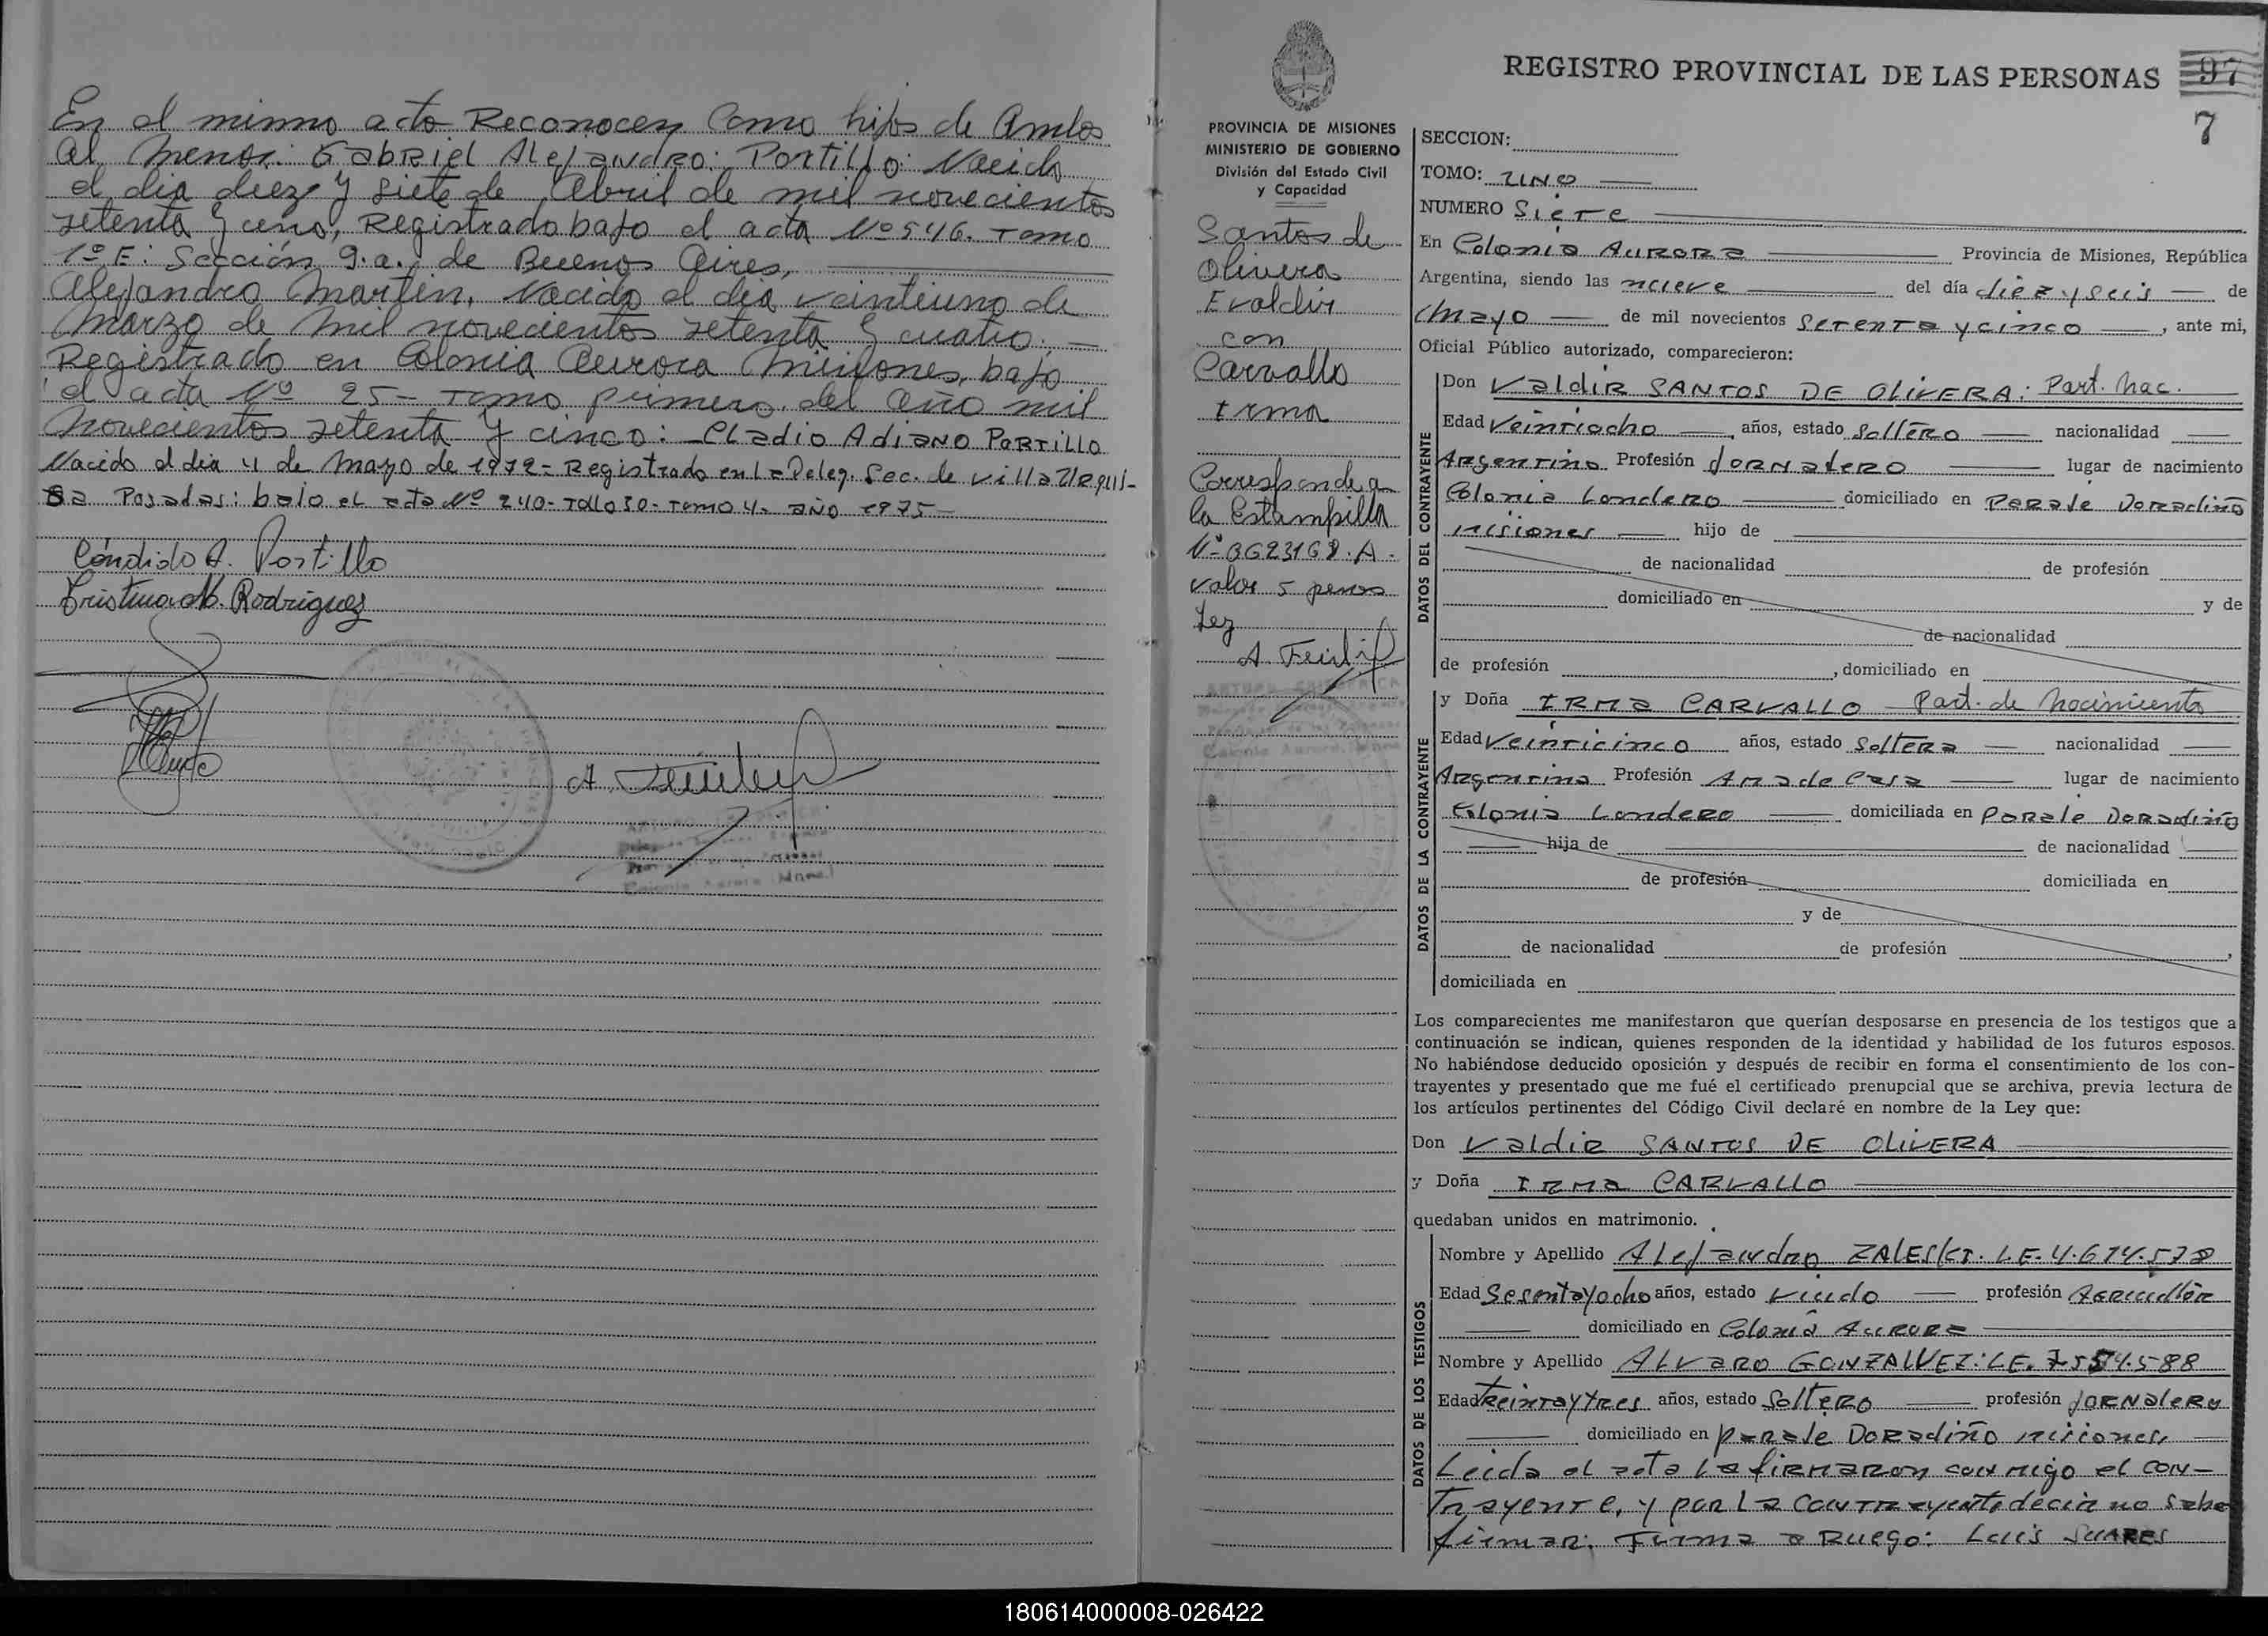 En el mismo acto Reconocen Como hijos de Ambos
al menor: Gabriel Alejandro: Portillo: Nacido
el dia diez y siete de Abril de mil novecientos
setenta y uno, Registrado bajo el acta Nº 546. Tomo
1º E: Sección 9.a. de Buenos Aires,
Alejandro Martin, Nacido el dia veintiuno de
Marzo de mil novecientos setenta y cuatro,
Registrado en Colonia Aurora Misiones, bajo
el acta Nº 25 - Tomo primero del año mil
Novecientos setenta y cinco: - Cladio Adiano Portillo
Nacido el dia 4 de Mayo de 1972 - Registrado en la Deleg. Sec. de Villa Urqui-
sa Posadas: bajo el acta Nº 240 - Tomo 4 - año 1975
Cándido A. Portillo
Cristina M. Rodriguez
REGISTRO PROVINCIAL DE LAS PERSONAS 97
7
PROVINCIA DE MISIONES
MINISTERIO DE GOBIERNO
División del Estado Civil
y Capacidad
Santos de
Olivera
Evaldir
con
Carvallo
Irma
Corresponde a
la Estampilla
Nº 0623168.A.
valor 5 pesos
Ley
SECCION:
TOMO: UNO
NUMERO Siete
En Colonia Aurora Provincia de Misiones, República
Argentina, siendo las nueve del día diez y seis de
Mayo de mil novecientos setenta y cinco, ante mi,
Oficial Público autorizado, comparecieron:
DATOS DEL CONTRAYENTE
Don Valdir SANTOS DE OLIVERA: Part. Nac.
Edad Veintiocho años, estado Soltero nacionalidad
Argentino Profesión Jornalero lugar de nacimiento
Colonia Londero domiciliado en Paraje Doradiño
Misiones hijo de
de nacionalidad de profesión
domiciliado en y de
de nacionalidad
de profesión , domiciliado en
DATOS DE LA CONTRAYENTE
y Doña IRMA CARVALLO Part. de Nacimiento
Edad Veinticinco años, estado Soltera nacionalidad
Argentina Profesión Ama de Casa lugar de nacimiento
Colonia Londero domiciliada en Paraje Doradiño
hija de de nacionalidad
de profesión domiciliada en
y de
de nacionalidad de profesión ,
domiciliada en
Los comparecientes me manifestaron que querían desposarse en presencia de los testigos que a
continuación se indican, quienes responden de la identidad y habilidad de los futuros esposos.
No habiéndose deducido oposición y después de recibir en forma el consentimiento de los con-
trayentes y presentado que me fué el certificado prenupcial que se archiva, previa lectura de
los artículos pertinentes del Código Civil declaré en nombre de la Ley que:
Don Valdir SANTOS DE OLIVERA
y Doña IRMA CARVALLO
quedaban unidos en matrimonio.
DATOS DE LOS TESTIGOS
Nombre y Apellido Alejandro ZALESKI. L.E. 4.674.578
Edad Sesentayocho años, estado Viudo profesión Agricultor
domiciliado en Colonia Aurora
Nombre y Apellido Alvaro GONZALVEZ: L.E. 7.554.588
Edad treintaytres años, estado Soltero profesión Jornalero
domiciliado en Paraje Doradiño Misiones,
Leida el acta la firmaron conmigo el con-
trayente, y por la contrayente decir no saber
firmar: Firma a Ruego: Luis SUARES
180614000008-026422